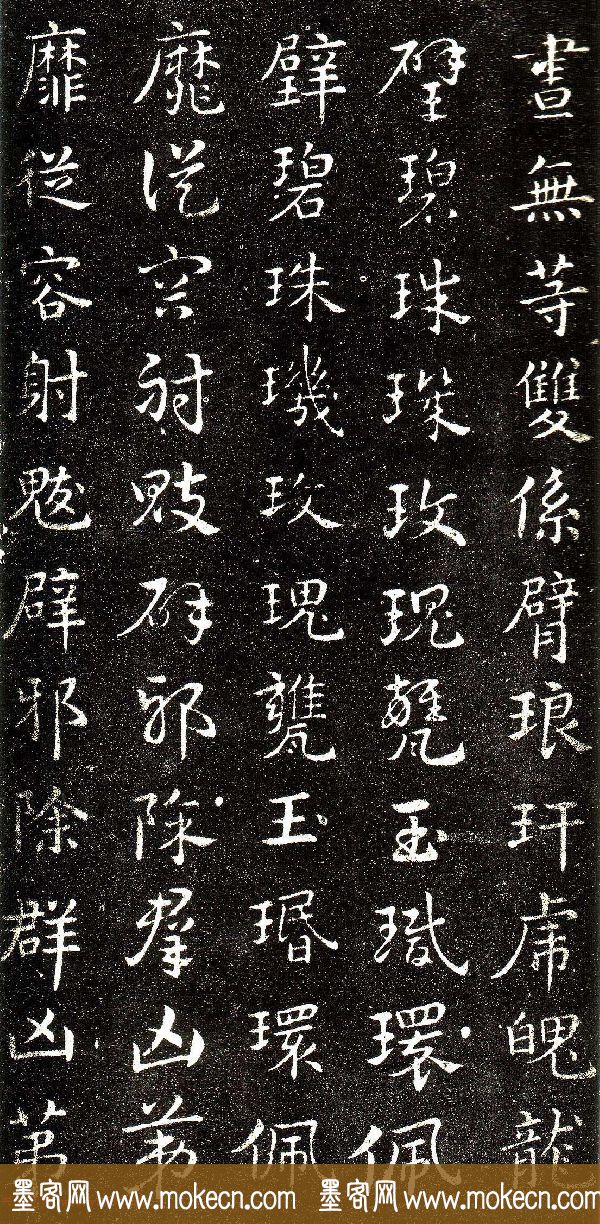 畫無等雙係臂琅玕虎魄龍
璧碧珠璣玫瑰甕玉瑉環佩
璧碧珠璣玫瑰甕玉瑉環佩
靡從容射鬾辟邪除群凶第
靡從容射鬾辟邪除群凶第
墨客网 www.mokecn.com 墨客网 www.mokecn.com